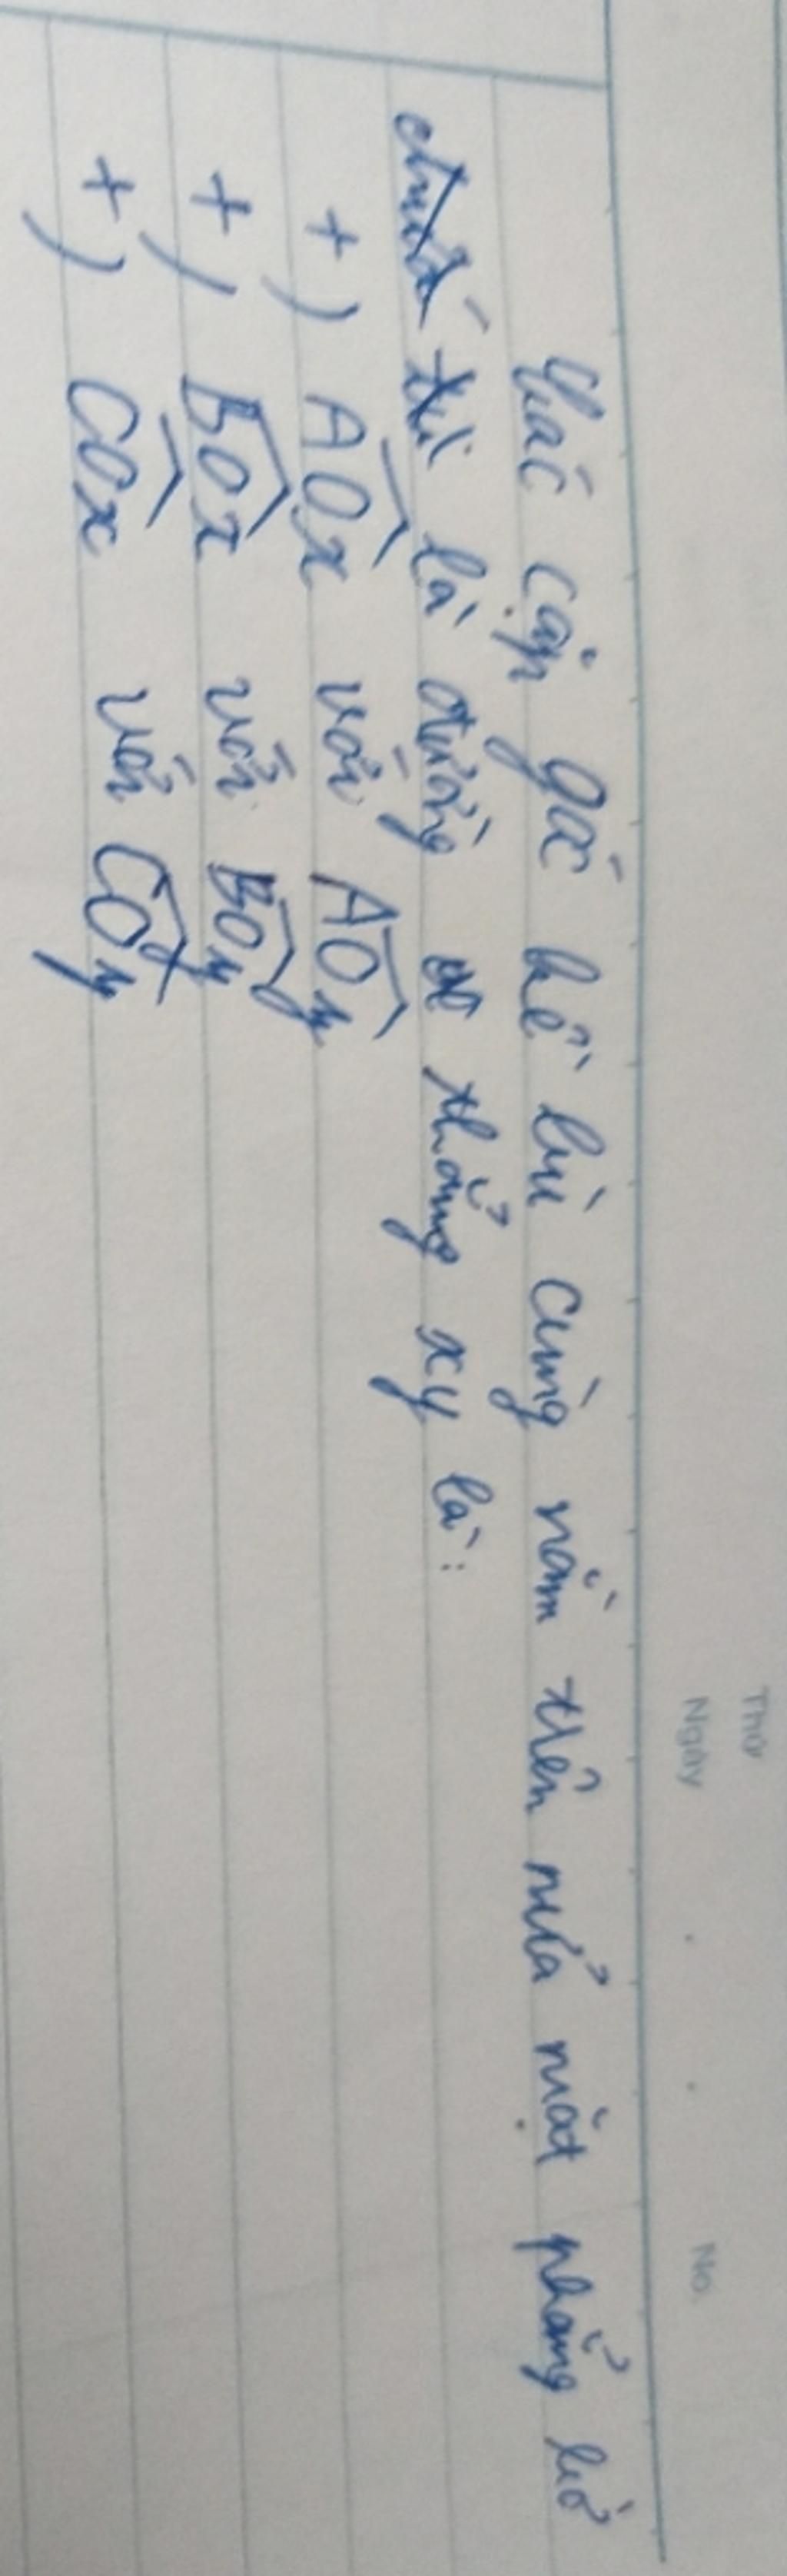 Thứ
Ngày No.
Các cặp góc kề bù cùng nằm trên nửa mặt phẳng bờ
là đường thẳng xy là:
+) AOx với AOy
+) BOx với BOy
+) COx với COy